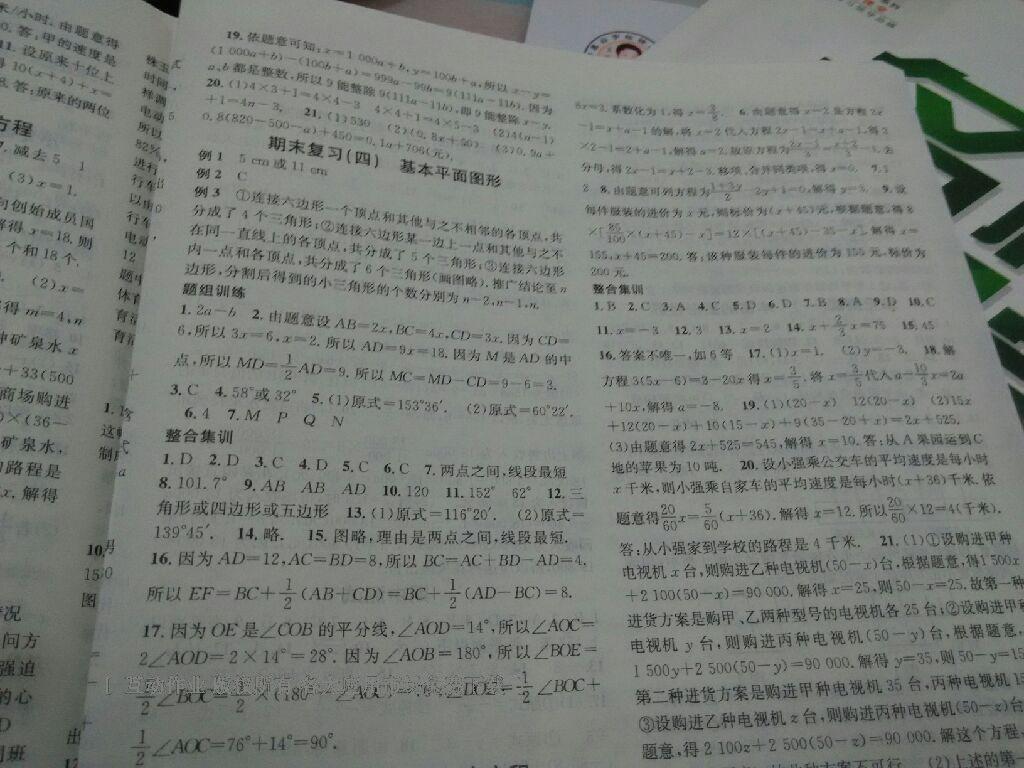 米/小时.由题意得
答:甲的速度是
设原来十位上
10(x+4)+x=
答:原来的两位
方程
减去5 1
(3)x=1.
创始成员国
解得x=18.则
个和18个.
(2)x=
得m=4,n
矿泉水x
+33(500
商场购进
)×(36-
矿泉水,
的路程是
x.解得
19.依题意可知:x=1 000a+b,y=100b+a,所以x-y=
(1 000a+b)-(100b+a)=999a-99b=9(111a-11b).因为
a,b都是整数,所以9能整除9(111a-11b),即9能整除x-y.
20.(1)4×3+1=4×4-3 4×4+1=4×5-3 (2)4(n-1)
+1=4n-3. 21.(1)530 (2)(0.8x+50) (3)0.9a+
0.8(820-500-a)+450=0.1a+706(元).
期末复习(四) 基本平面图形
例1 5 cm或11 cm
例2 C
例3 ①连接六边形一个顶点和其他与之不相邻的各顶点,共
分成了4个三角形;②连接六边形某一边上一点和其他与之不
在同一直线上的各顶点,共分成了5个三角形;③连接六边形
内一点和各顶点,共分成了6个三角形(画图略).推广结论至n
边形,分割后得到的小三角形的个数分别为n-2,n-1,n.
题组训练
1.2a-b 2.由题意设AB=2x,BC=4x,CD=3x.因为CD=
6,所以3x=6,x=2.所以AD=9x=18.因为M是AD的中
点,所以MD=1/2AD=9.所以MC=MD-CD=9-6=3.
3.C 4.58°或32° 5.(1)原式=153°36′. (2)原式=60°22′.
6.4 7.M P Q N
整合集训
1.D 2.D 3.C 4.D 5.C 6.C 7.两点之间,线段最短
8.101.7° 9.AB AB AD 10.120 11.152° 62° 12.三
角形或四边形或五边形 13.(1)原式=116°20′. (2)原式=
139°45′. 14.略. 15.图略,理由是两点之间,线段最短.
16.因为AD=12,AC=BD=8,所以BC=AC+BD-AD=4.
所以EF=BC+1/2(AB+CD)=BC+1/2(AD-BC)=8.
17.因为OE是∠COB的平分线,∠AOD=14°,所以∠AOC=
2∠AOD=2×14°=28°.因为∠AOB=180°,所以∠BOE=
1/2∠BOC=1/2×(180°
∠BOC+
1/2∠AOC=76°+14°=90°.
6x=3.系数化为1,得x=3/5. 6.由题意得x=2是方程2x
-1=x+a-1的解,将x=2代入方程2x-1=x+a-1,得2
×2-1=2+a-1,解得a=2.故原方程为
分母,得2x-1=x+2-3.移项、合并同类项,得x=0.
2 8.由题意可列方程为
解得y=3. 9.设
每件服装的进价为x元,则标价为(x+45)元,根据题意,得8
×[85/100×(x+45)-x]=12×[(x+45)-35-x].解得x=
155,x+45=200.答:该种服装每件的进价为155元,标价为
200元.
整合集训
1.B 2.C 3.A 4.C 5.D 6.D 7.B 8.A 9.D 10.C
11.x=-3 12.3 13.x=2 14.x+2/3x=75 15.45
16.答案不唯一,如6等 17.(1)x=1. (2)y=-3. 18.解
方程3(5x-6)=3-20x得x=3/5.将x=3/5代入a-10/3x=2a
+10x,解得a=-8. 19.(1)(20-x) 12(20-x) (2)15x
+12(20-x)+10(15-x)+9(35-20+x)=2x+525.
(3)由题意得2x+525=545,解得x=10.答:从A果园运到C
地的苹果为10吨. 20.设小强乘公交车的平均速度是每小时
x千米,则小强乘自家车的平均速度是每小时(x+36)千米.依
题意得20/60x=5/60(x+36).解得x=12.所以20/60×12=4(千米).
答:从小强家到学校的路程是4千米. 21.(1)①设购进甲种
电视机x台,则购进乙种电视机(50-x)台,根据题意,得1 500x
+2 100(50-x)=90 000.解得x=25,则50-x=25.故第一种
进货方案是购甲、乙两种型号的电视机各25台;②设购进甲种
电视机y台,则购进丙种电视机(50-y)台,根据题意,
1 500y+2 500(50-y)=90 000.解得y=35,则50-y=15
第二种进货方案是购进甲种电视机35台,丙种电视机15
③设购进乙种电视机z台,则购进丙种电视机(50-z)台,
题意,得2 100z+2 500(50-z)=90 000.解这个方程,
(2)上述的第一